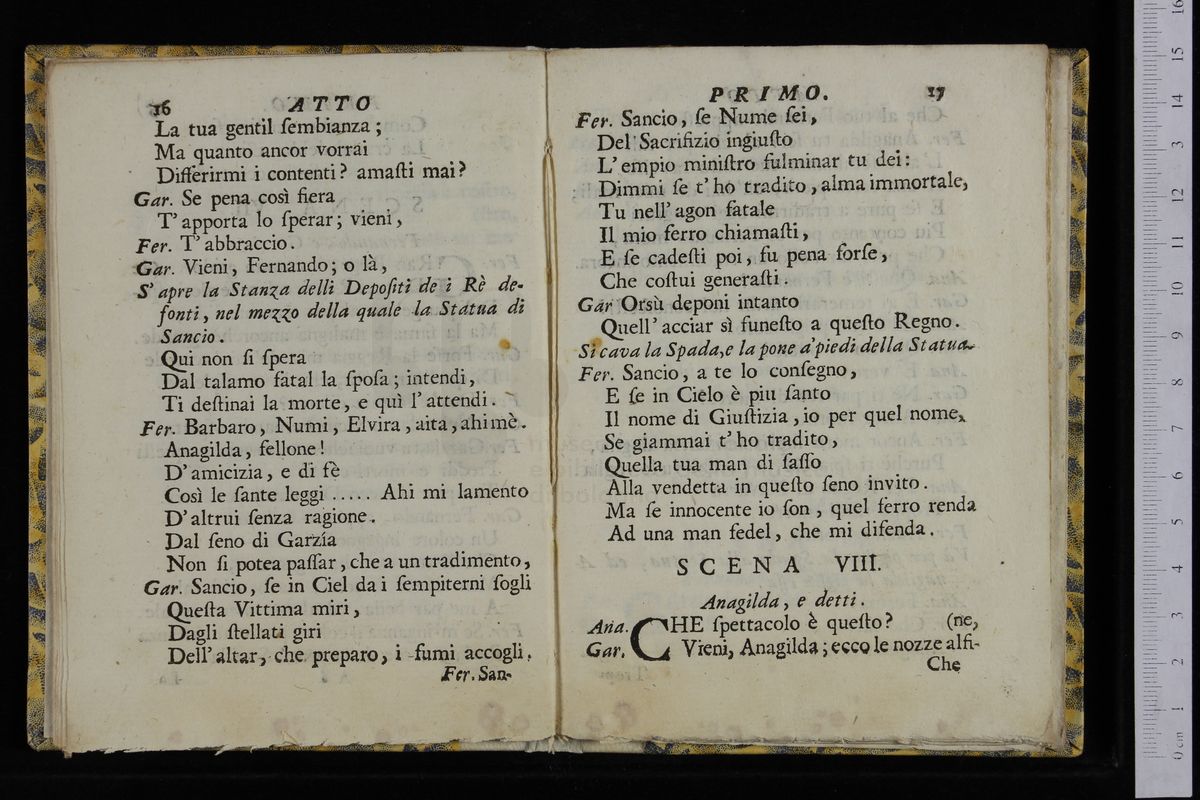 16 ATTO
La tua gentil ſembianza;
Ma quanto ancor vorrai
Differirmi i contenti? amaſti mai?
Gar. Se pena così fiera
T'apporta lo ſperar; vieni,
Fer. T'abbraccio.
Gar. Vieni, Fernando; o là,
S'apre la Stanza delli Depoſiti de i Rè de-
fonti, nel mezzo della quale la Statua di
Sancio.
Qui non ſi ſpera
Dal talamo fatal la ſpoſa; intendi,
Ti deſtinai la morte, e quì l'attendi.
Fer. Barbaro, Numi, Elvira, aita, ahimè.
Anagilda, fellone!
D'amicizia, e di fè
Così le ſante leggi ..... Ahi mi lamento
D'altrui ſenza ragione.
Dal ſeno di Garzía
Non ſi potea paſſar, che a un tradimento,
Gar. Sancio, ſe in Ciel da i ſempiterni ſogli
Queſta Vittima miri,
Dagli ſtellati giri
Dell'altar, che preparo, i fumi accogli.
Fer. San-
PRIMO. 17
Fer. Sancio, ſe Nume ſei,
Del Sacrifizio ingiuſto
L'empio miniſtro fulminar tu dei:
Dimmi ſe t'ho tradito, alma immortale,
Tu nell'agon fatale
Il mio ferro chiamaſti,
E ſe cadeſti poi, fu pena forſe,
Che coſtui generaſti.
Gar Orsù deponi intanto
Quell'acciar sì funeſto a queſto Regno.
Si cava la Spada, e la pone a'piedi della Statua
Fer. Sancio, a te lo conſegno,
E ſe in Cielo è piu ſanto
Il nome di Giuſtizia, io per quel nome,
Se giammai t'ho tradito,
Quella tua man di ſaſſo
Alla vendetta in queſto ſeno invito.
Ma ſe innocente io ſon, quel ferro renda
Ad una man fedel, che mi difenda.
SCENA VIII.
Anagilda, e detti.
Ana. CHE ſpettacolo è queſto? (ne,
Gar. Vieni, Anagilda; ecco le nozze alfi-
Che